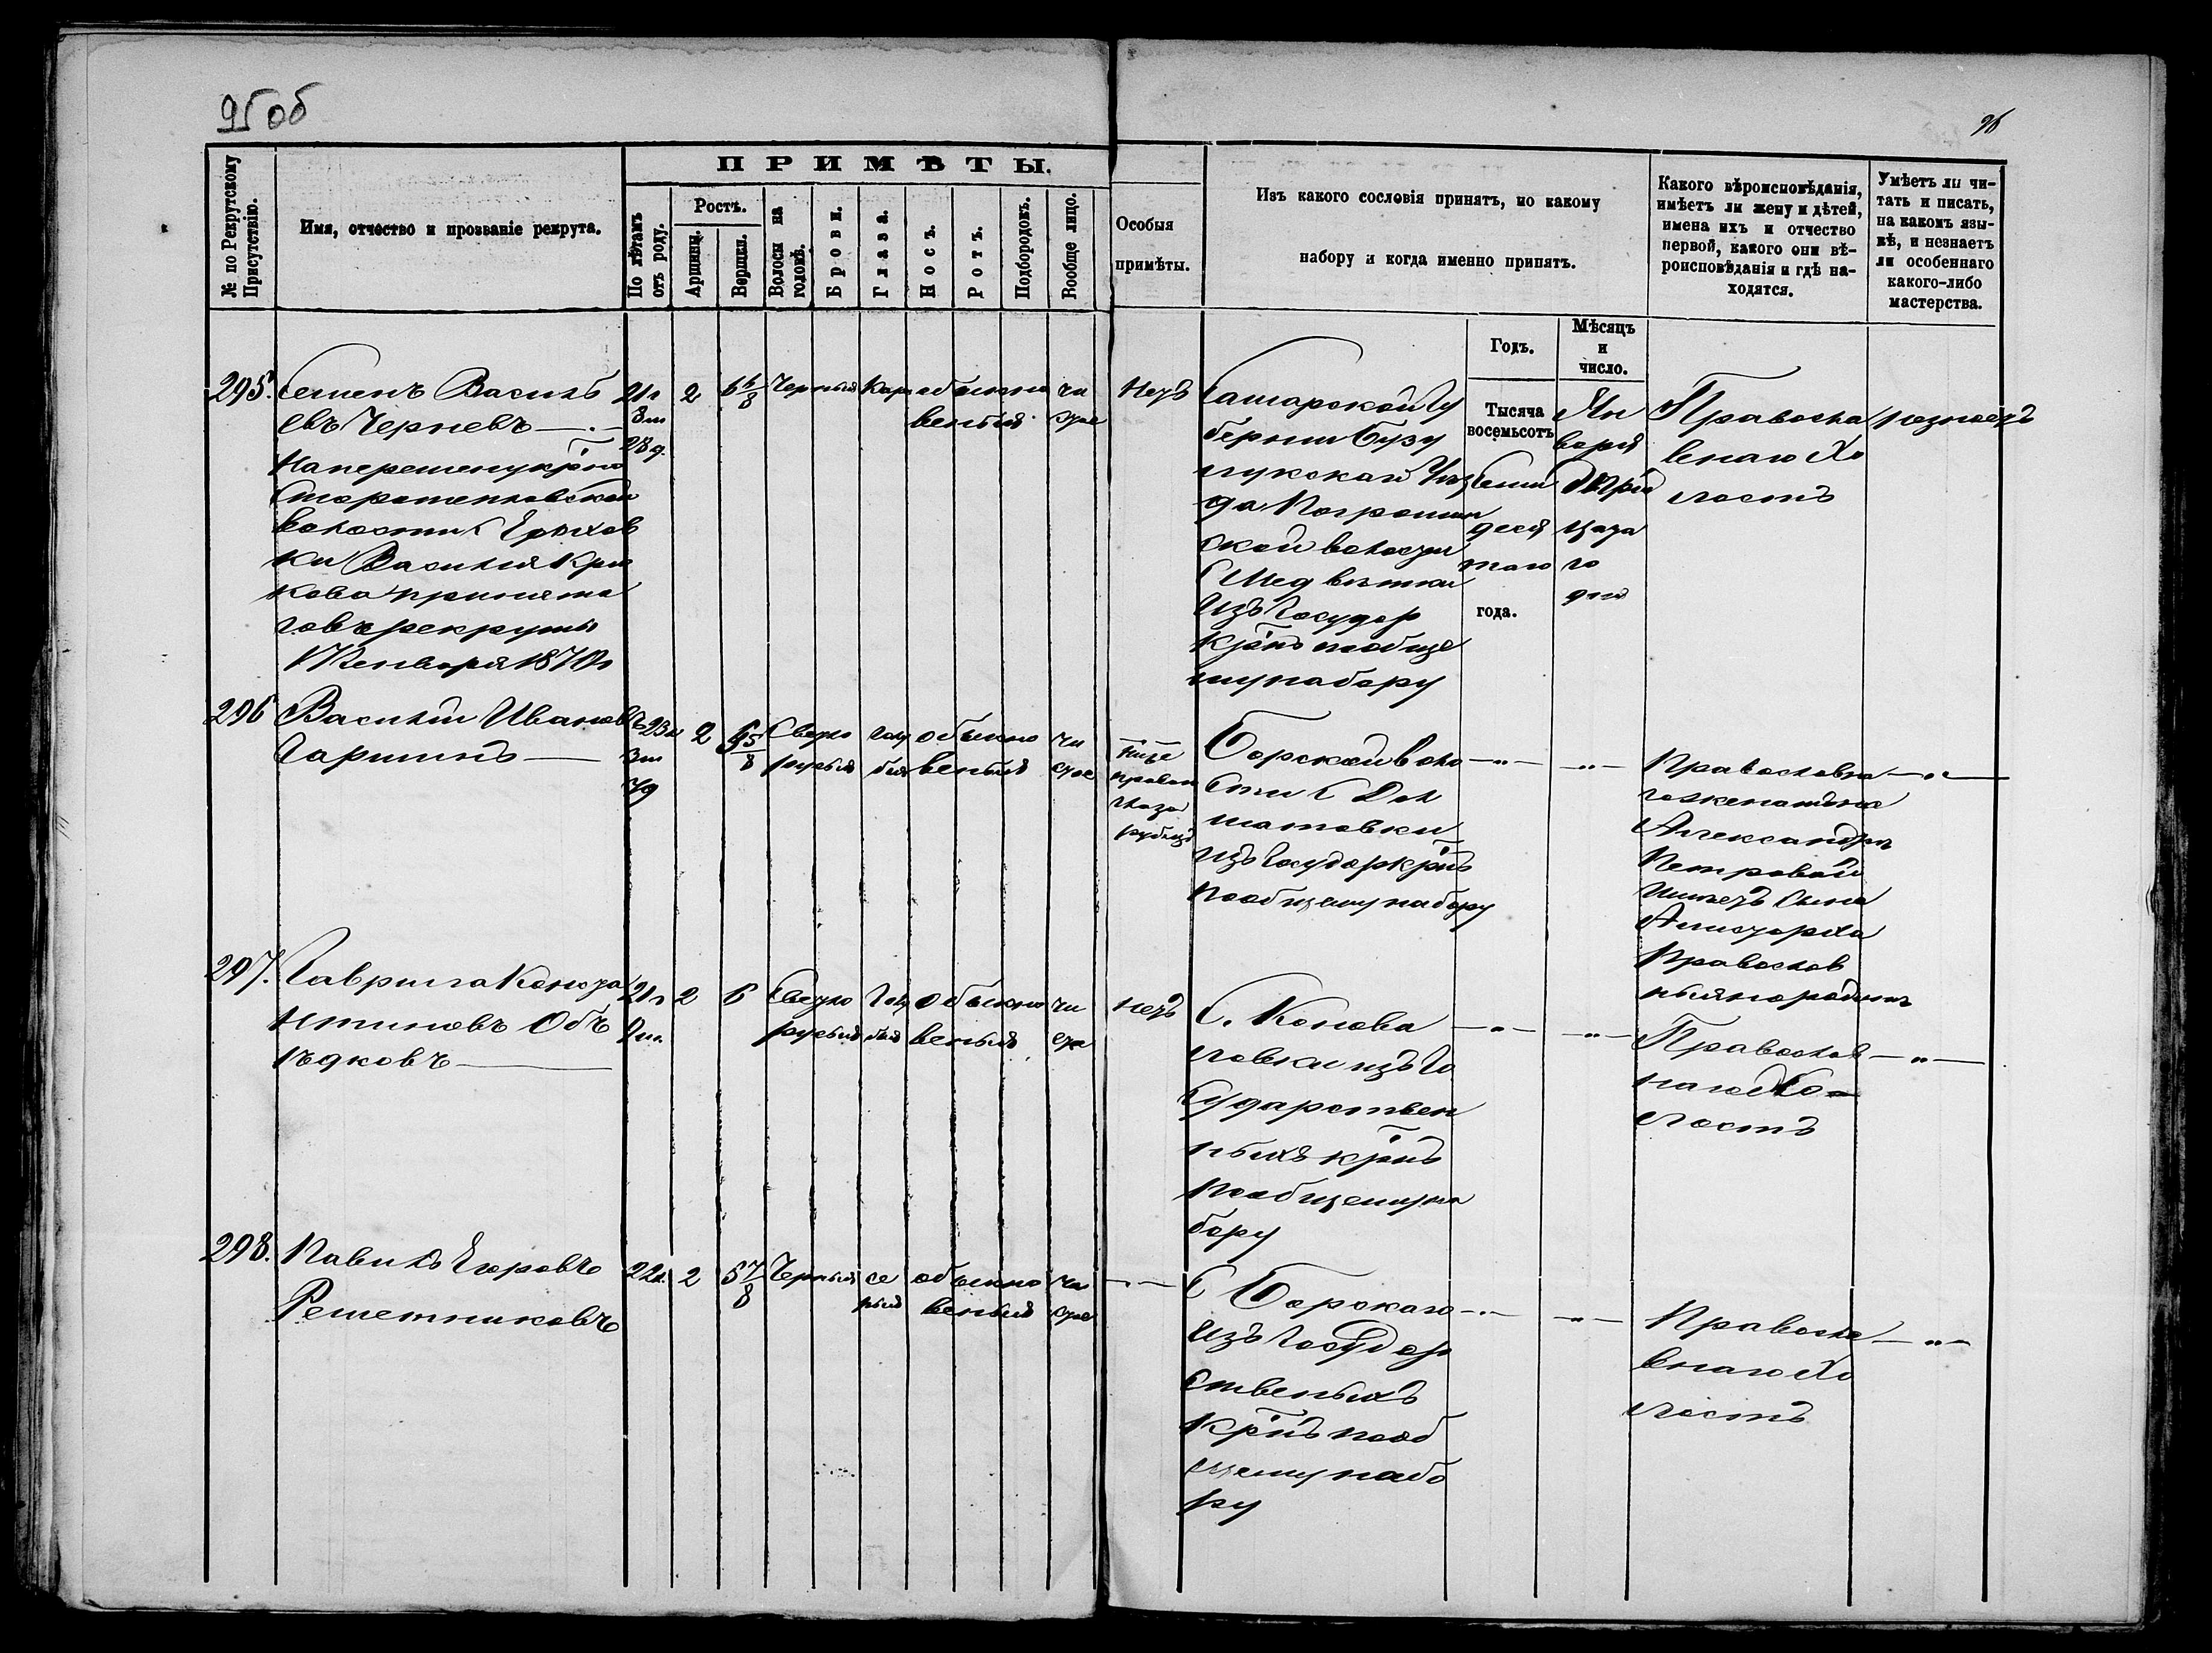 95 об
96
№ по Рекрутскому Присутствію.
Имя, отчество и прозваніе рекрута.
ПРИМѢТЫ.
По лѣтамъ отъ роду.
Ростъ.
Аршины.
Вершки.
Волосы на головѣ.
Брови.
Глаза.
Носъ.
Ротъ.
Подбородокъ.
Вообще лицо.
Особыя
примѣты.
Изъ какого сословія принятъ, по какому
набору и когда именно принятъ.
Годъ.
Мѣсяцъ
и
число.
Какого вѣроисповѣданія,
имѣетъ ли жену и дѣтей,
имена ихъ и отчество
первой, какого они вѣ-
роисповѣданія и гдѣ на-
ходятся.
Умѣетъ ли чи-
тать и писать,
на какомъ язы-
кѣ, и незнаетъ
ли особеннаго
какого-либо
мастерства.
295.
Семенъ Василь
евъ Черневъ
волости
ки Василія Крю
кова принята
го въ рекруты
Генваря 1870 г
21 г
3 м
28 д.
2
6 6/8
Черныя
Кар
обыкно
веный
чи
стое
Нетъ
Самарской Гу
берніи Бузу
лукской Уез
да Погромин
ской волости
С Медветки
Изъ Государ
Крснъ пообще
му набору
Тысяча
восемьсотъ
семи
деся
таго
года.
Ян
варя
Трид
цата
го
дня
Правосла
внаго Хо
лостъ
незнаетъ
296
Василій Ивановъ
Гаршинъ
23 г
3 м
7 д
2
5/8
Светло
русыя
голу
быя
обыкно
веный
чи
стое
ниже
праваго
глаза
рубецъ
Борской воло
сти С Дол
матовки
изъ Государ крснъ
пообщему набору
Православна
го женатъ на
Александре
Петровой
Имеетъ сына
Аристарха
Православ
ныя на родине
297.
Гаврила Конста
нтиновъ Объ
едковъ
21 г
9 м.
2
6
Светло
русыя
Голу
быя
Обыкно
веный
чи
стое
нетъ
С. Конова
ловки изъ Го
сударствен
ныхъ крснъ
пообщему на
бору
Православ
наго Хо
лостъ
298.
Павилъ Егоровъ
Решетниковъ
22 г.
2
5 7/8
Черныя
се
рыя
обыкно
веный
чи
стое
С Борскаго
Изъ Государ
ственыхъ
Крснъ пооб
щему набо
ру
Правосла
внаго Хо
лостъ